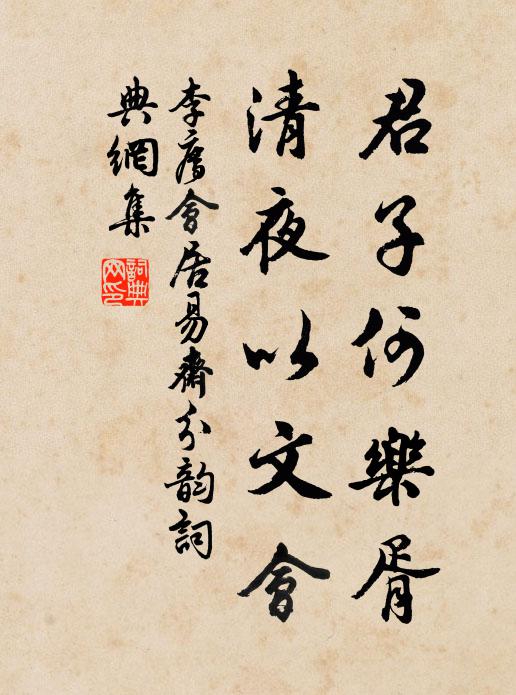 君子何樂胥
清夜以文會
李會居易齋分韵詞
典網集
詞典
网印